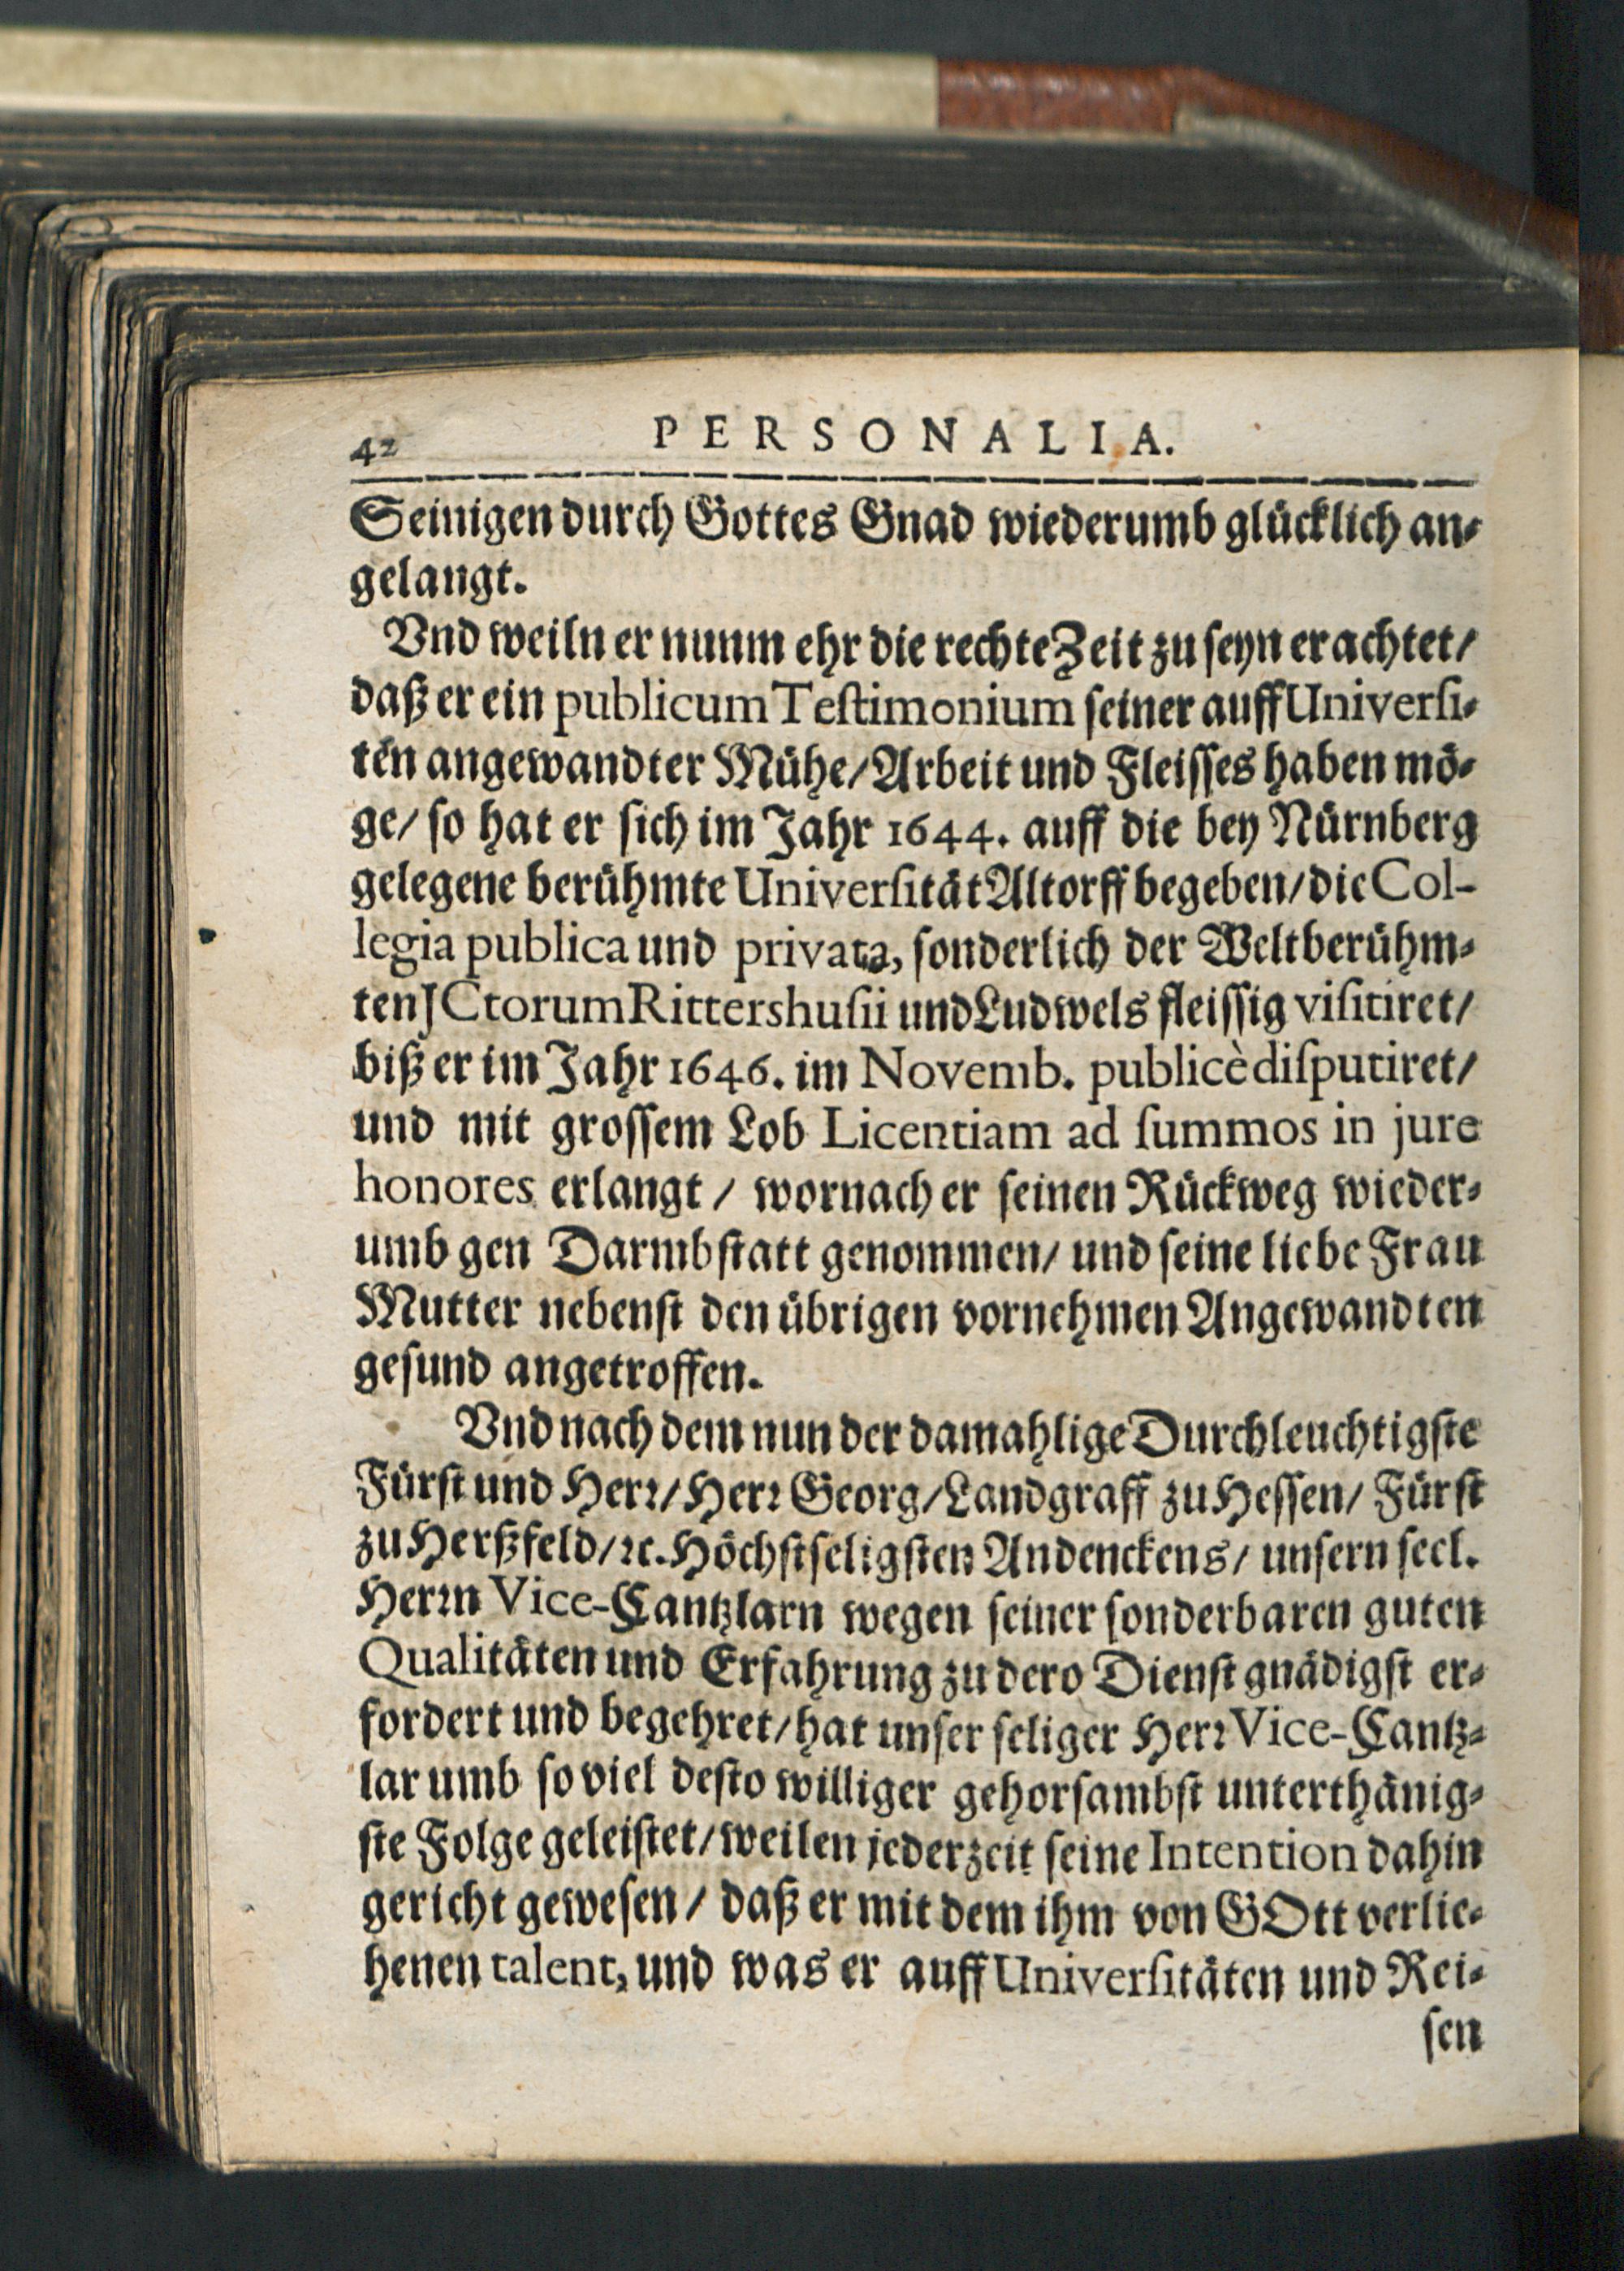 42 PERSONALIA.
Seinigen durch Gottes Gnad wiederumb glücklich an-
gelangt.
Vnd weiln er nunm ehr die rechte Zeit zu seyn erachtet/
daß er ein publicum Testimonium seiner auff Universi-
tén angewandter Mühe/ Arbeit und Fleisses haben mö-
ge/ so hat er sich im Jahr 1644. auff die bey Nürnberg
gelegene berühmte Universität Altorff begeben/ die Col-
legia publica und privata, sonderlich der Weltberühm-
ten JCtorum Rittershusii und Ludwels fleissig visitiret/
biß er im Jahr 1646. im Novemb. publicè disputiret/
und mit grossem Lob Licentiam ad summos in jure
honores erlangt / wornach er seinen Rückweg wieder-
umb gen Darmbstatt genommen/ und seine liebe Frau
Mutter nebenst den übrigen vornehmen Angewandten
gesund angetroffen.
Vnd nach dem nun der damahlige Durchleuchtigste
Fürst und Herr/ Herr Georg/ Landgraff zu Hessen/ Fürst
zu Herßfeld/ ꝛc. Höchstseligsten Andenckens/ unsern seel.
Herrn Vice-Cantzlarn wegen seiner sonderbaren guten
Qualitäten und Erfahrung zu dero Dienst gnädigst er-
fordert und begehret/ hat unser seliger Herr Vice-Cantz-
lar umb so viel desto williger gehorsambst unterthänig-
ste Folge geleistet/ weilen jederzeit seine Intention dahin
gericht gewesen/ daß er mit dem ihm von GOtt verlie-
henen talent, und was er auff Universitäten und Rei-
sen